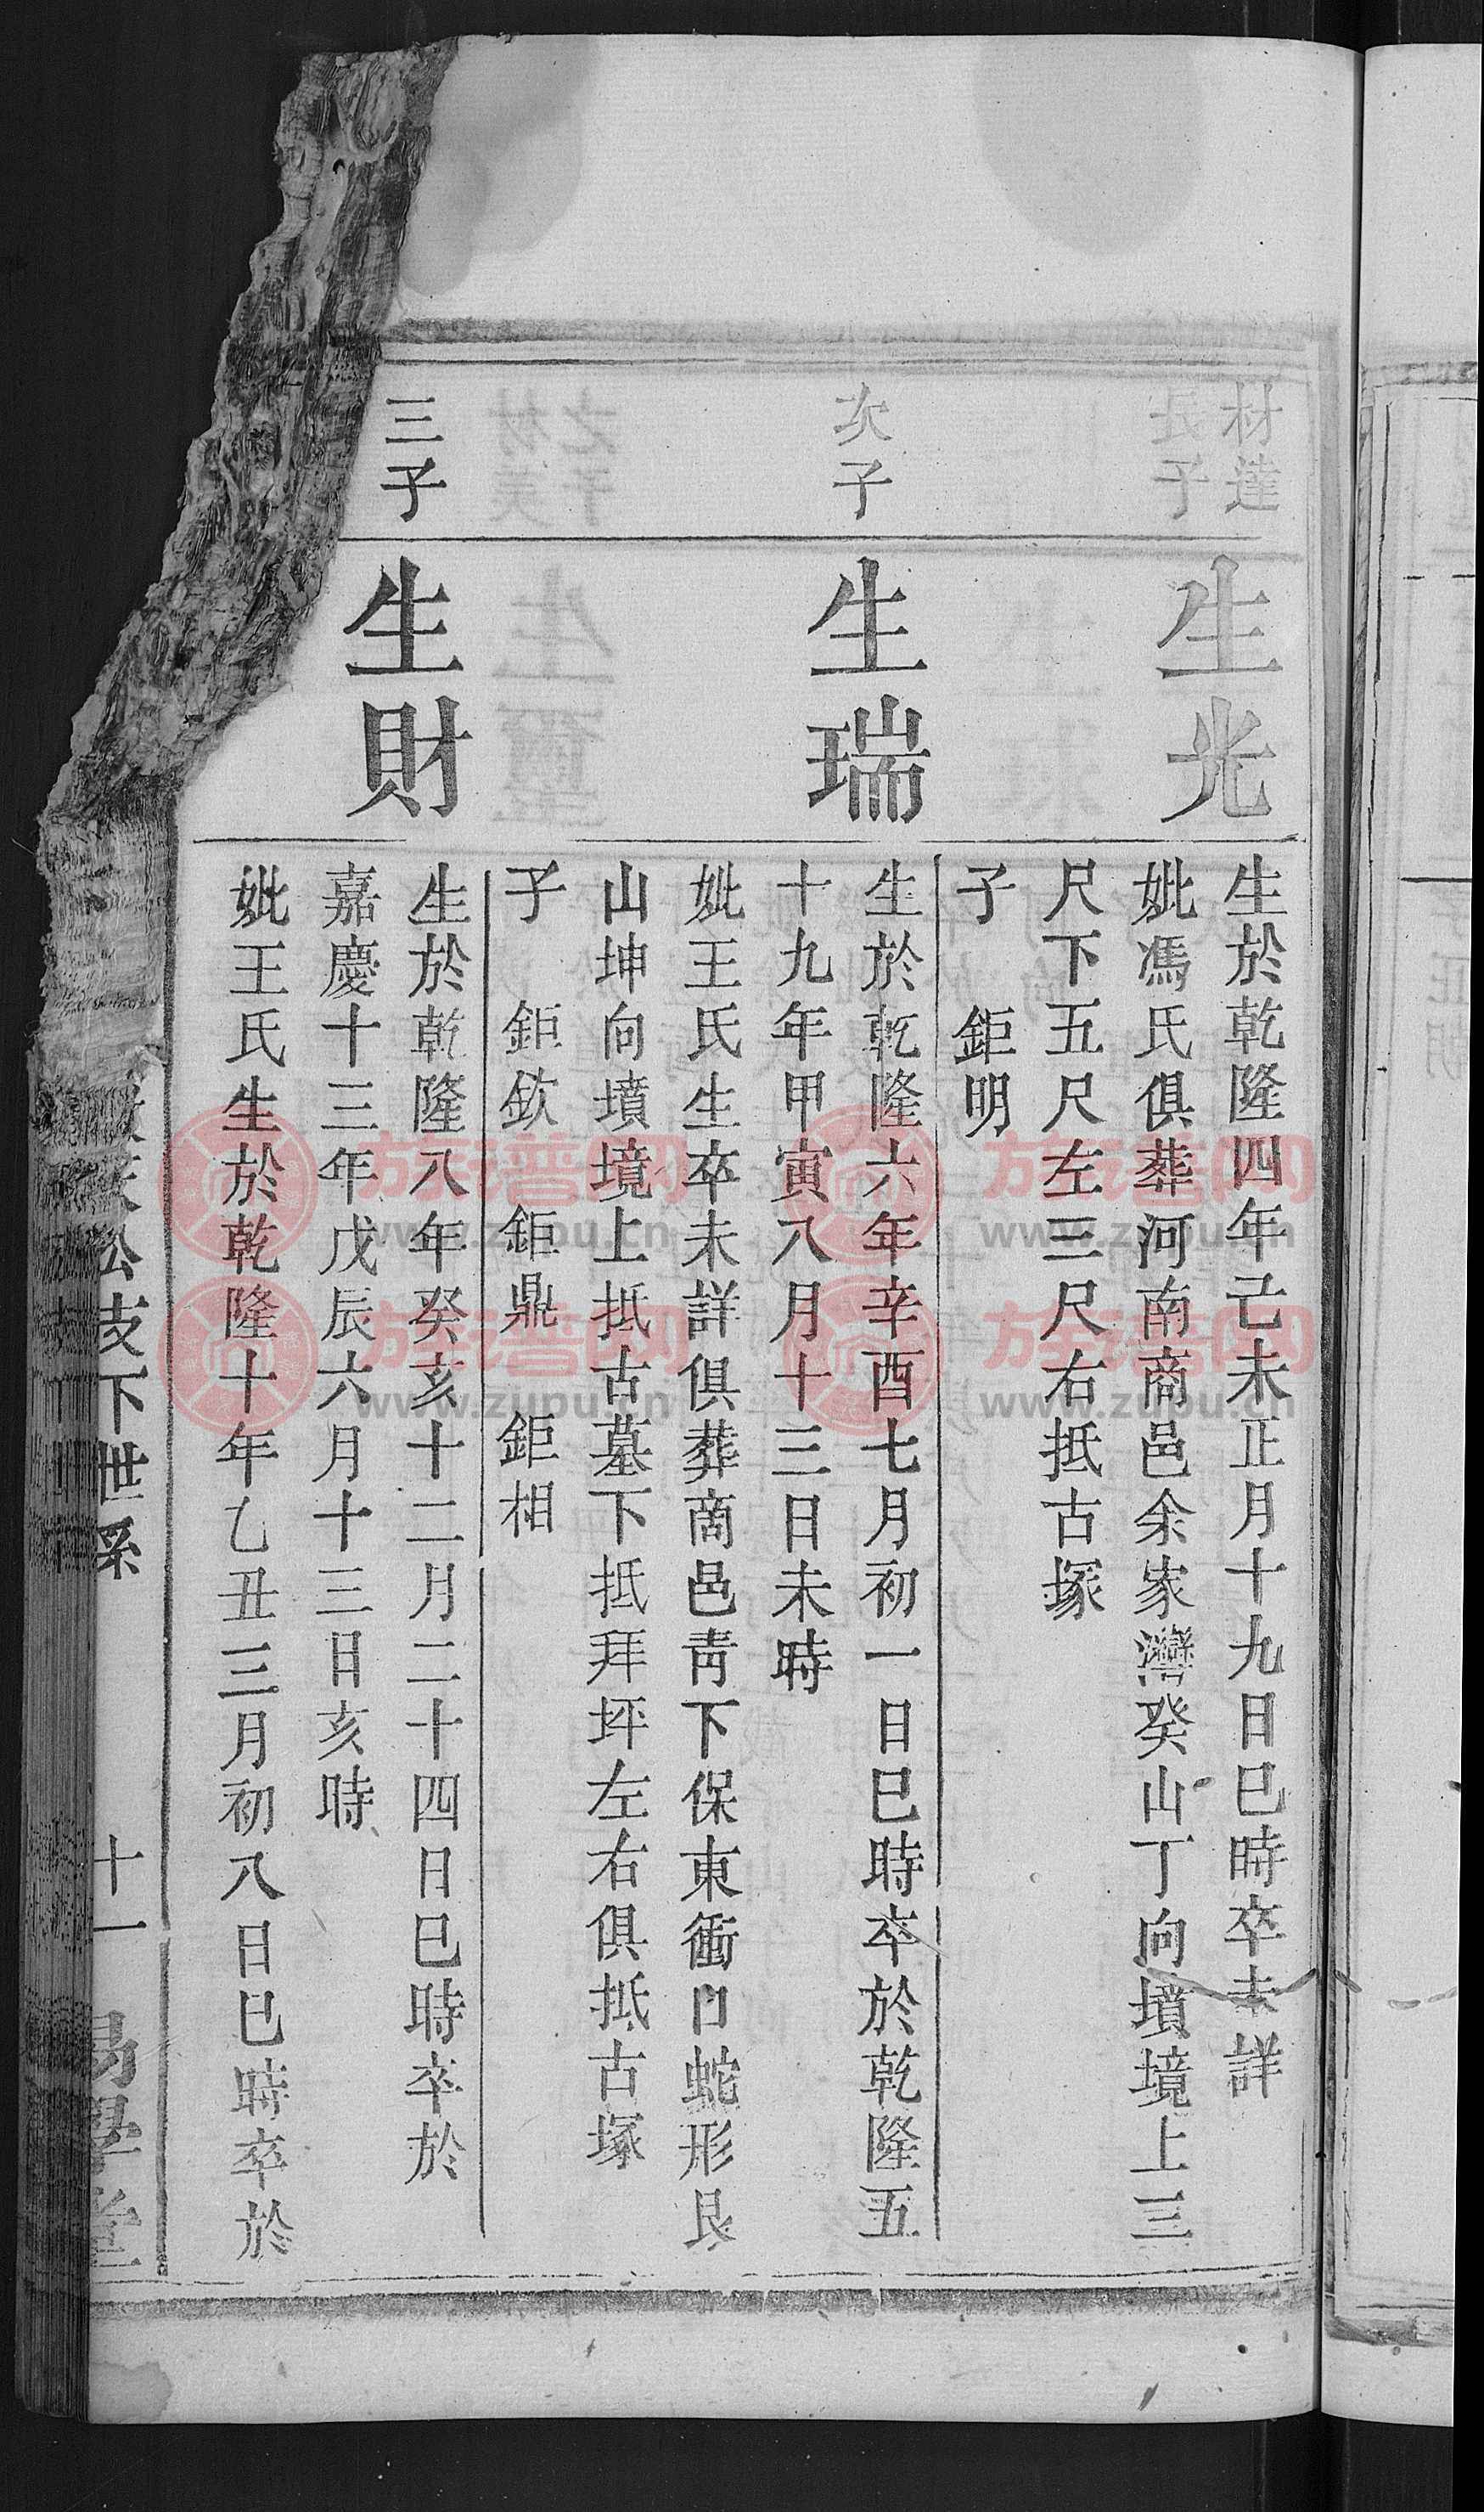 材達
長子
生光
生於乾隆四年己未正月十九日巳時卒未詳
妣馮氏俱葬河南商邑余家灣癸山丁向墳境上三
尺下五尺左三尺右抵古塚
子 鉅明
次子
生瑞
生於乾隆六年辛酉七月初一日巳時卒於乾隆五
十九年甲寅八月十三日未時
妣王氏生卒未詳俱葬商邑靑下保東衝口蛇形艮
山坤向墳境上抵古墓下抵拜坪左右俱抵古塚
子 鉅欽 鉅鼎 鉅相
三子
生財
生於乾隆八年癸亥十二月二十四日巳時卒於
嘉慶十三年戊辰六月十三日亥時
妣王氏生於乾隆十年乙丑三月初八日巳時卒於
公支下世系
十一
學堂
族譜网
www.zupu.cn